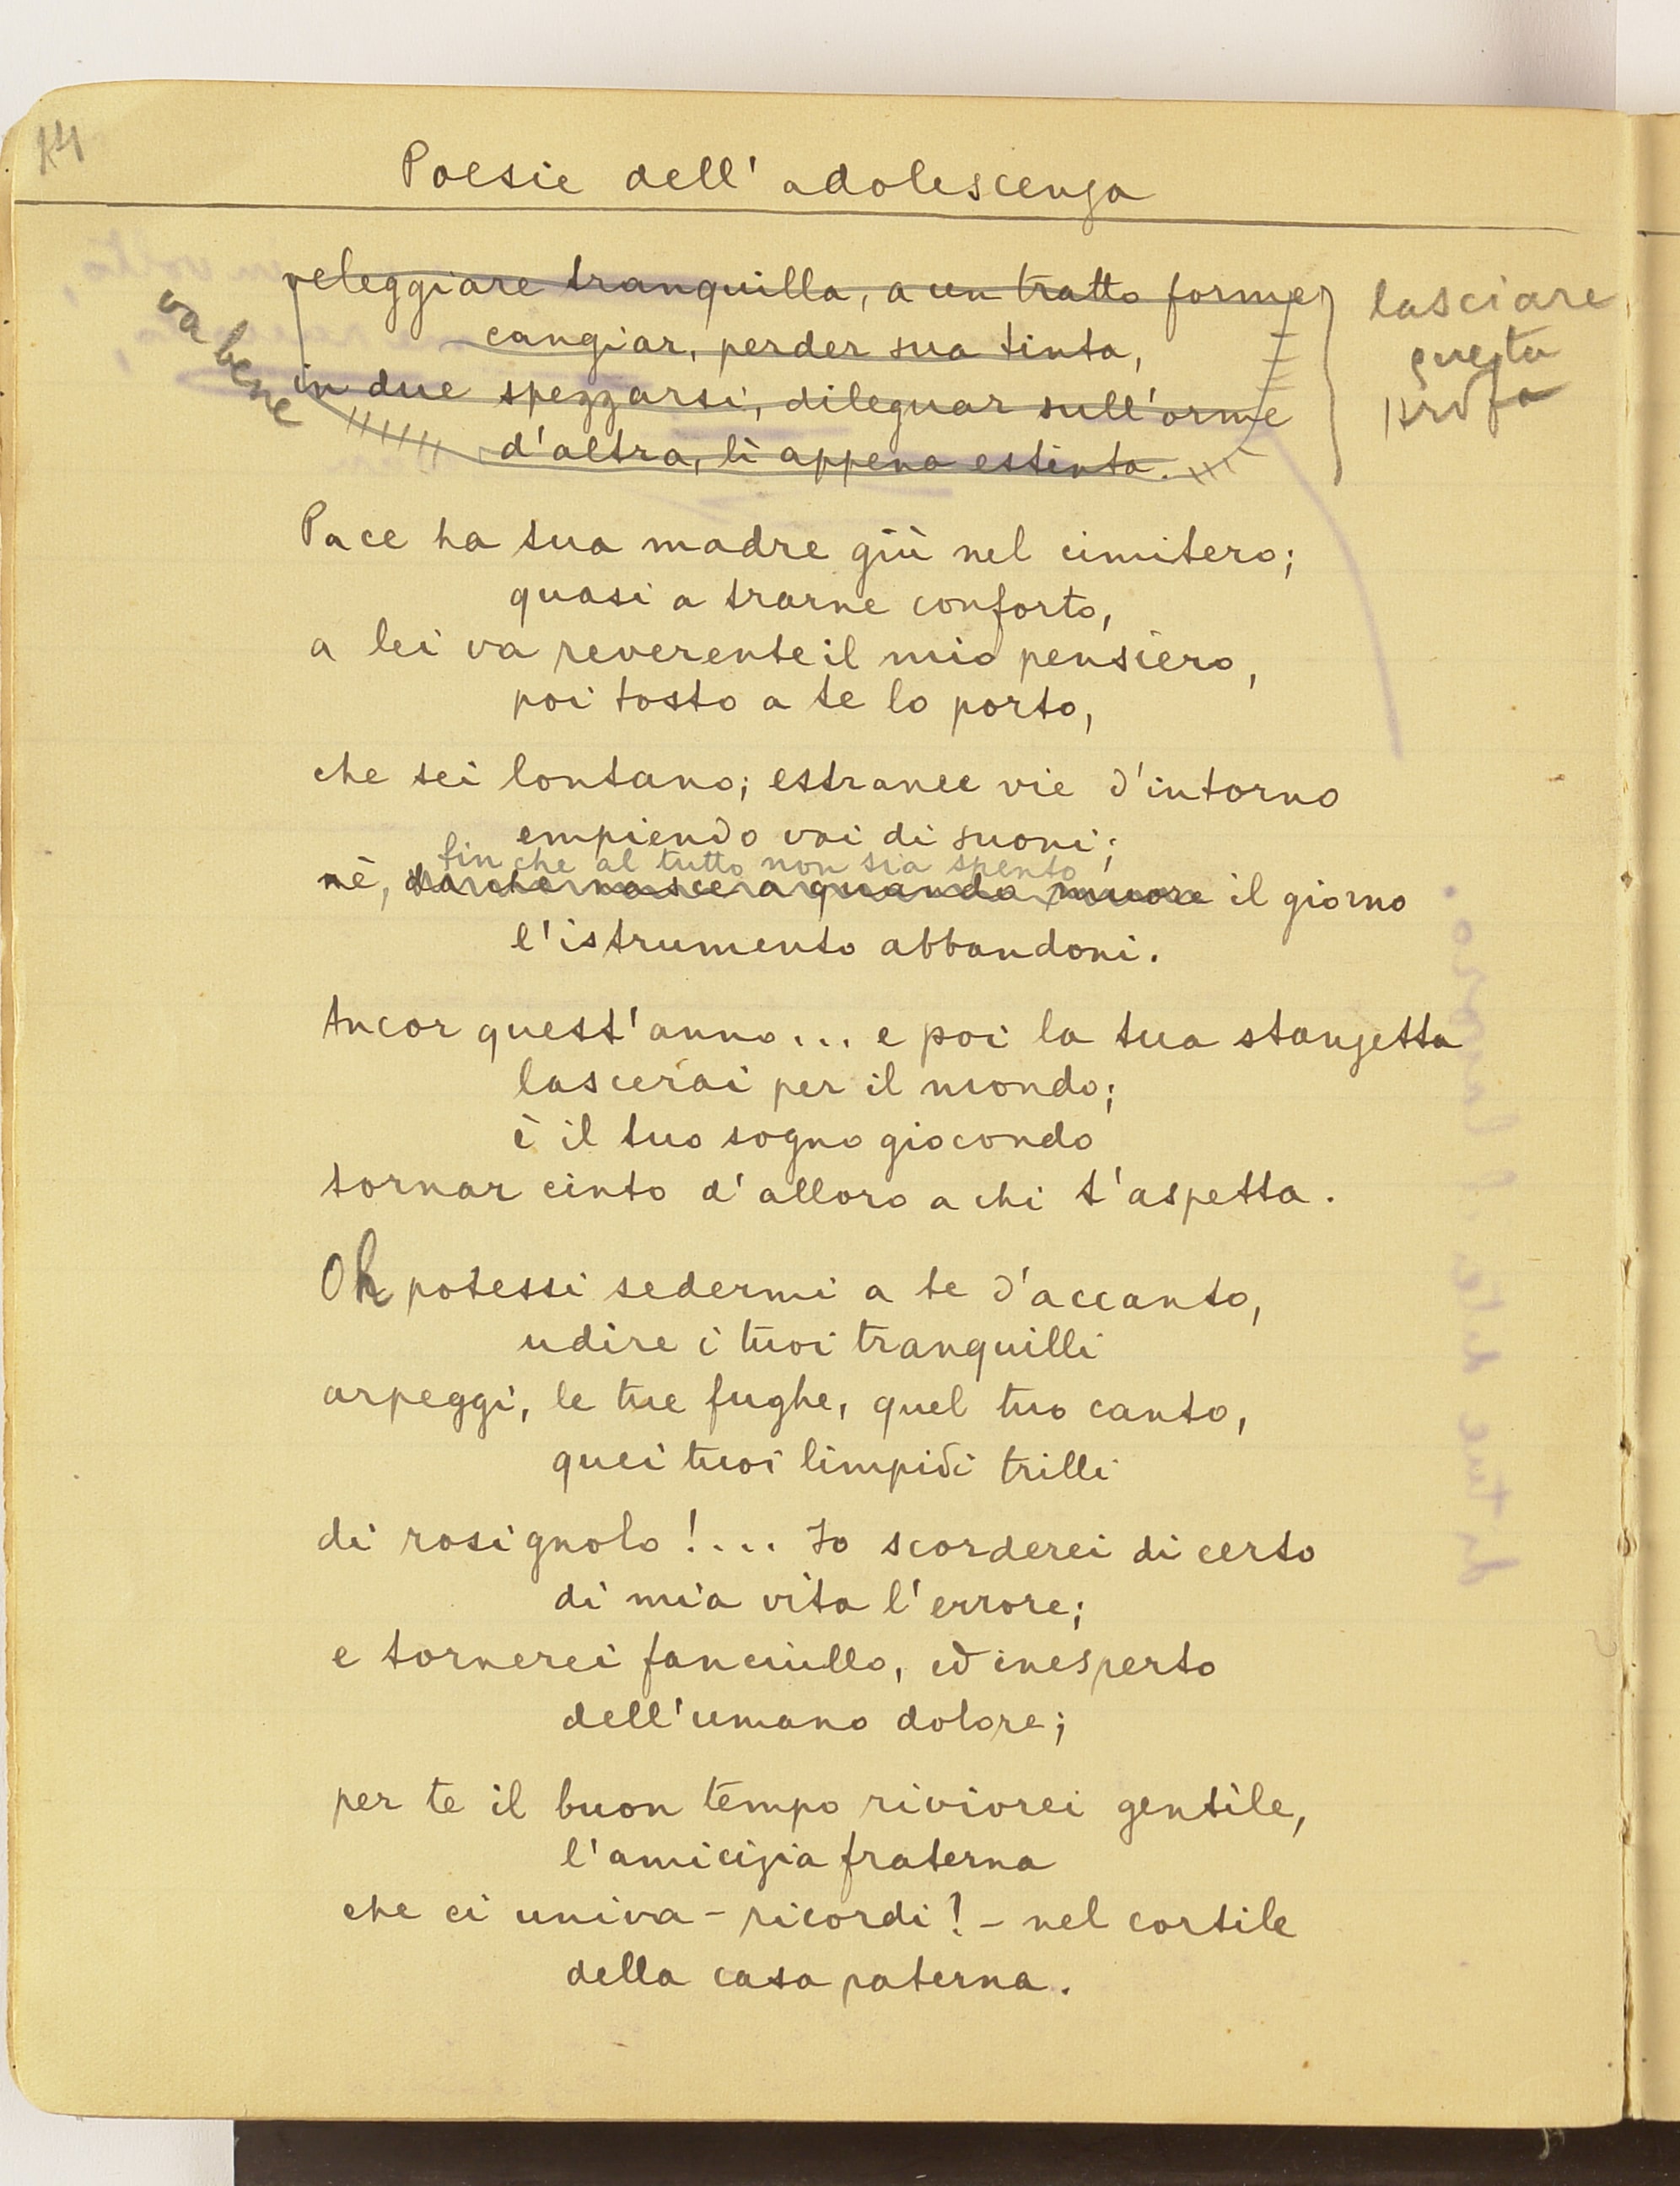 14
Poesie dell'adolescenza
veleggiare tranquilla, a un tratto forme
cangiar, perder sua tinta,
in due spezzarsi, dileguar sull'orme
d'altra, lì appena estinta.
va bene
lasciare
questa
strofa
Pace ha tua madre giù nel cimitero;
quasi a trarne conforto,
a lei va reverente il mio pensiero,
poi tosto a te lo porto,
che sei lontano; estranee vie d'intorno
empiendo vai di suoni;
fin che al tutto non sia spento
nè, da che nasce a quando muore il giorno
l'istrumento abbandoni.
Ancor quest'anno... e poi la tua stanzetta
lascerai per il mondo;
è il tuo sogno giocondo
tornar cinto d'alloro a chi t'aspetta.
Oh potessi sedermi a te d'accanto,
udire i tuoi tranquilli
arpeggi, le tue fughe, quel tuo canto,
quei tuoi limpidi trilli
di rosignolo!... Io scorderei di certo
di mia vita l'errore;
e tornerei fanciullo, ed inesperto
dell'umano dolore;
per te il buon tempo rivivrei gentile,
l'amicizia fraterna
che ci univa - ricordi! - nel cortile
della casa paterna.